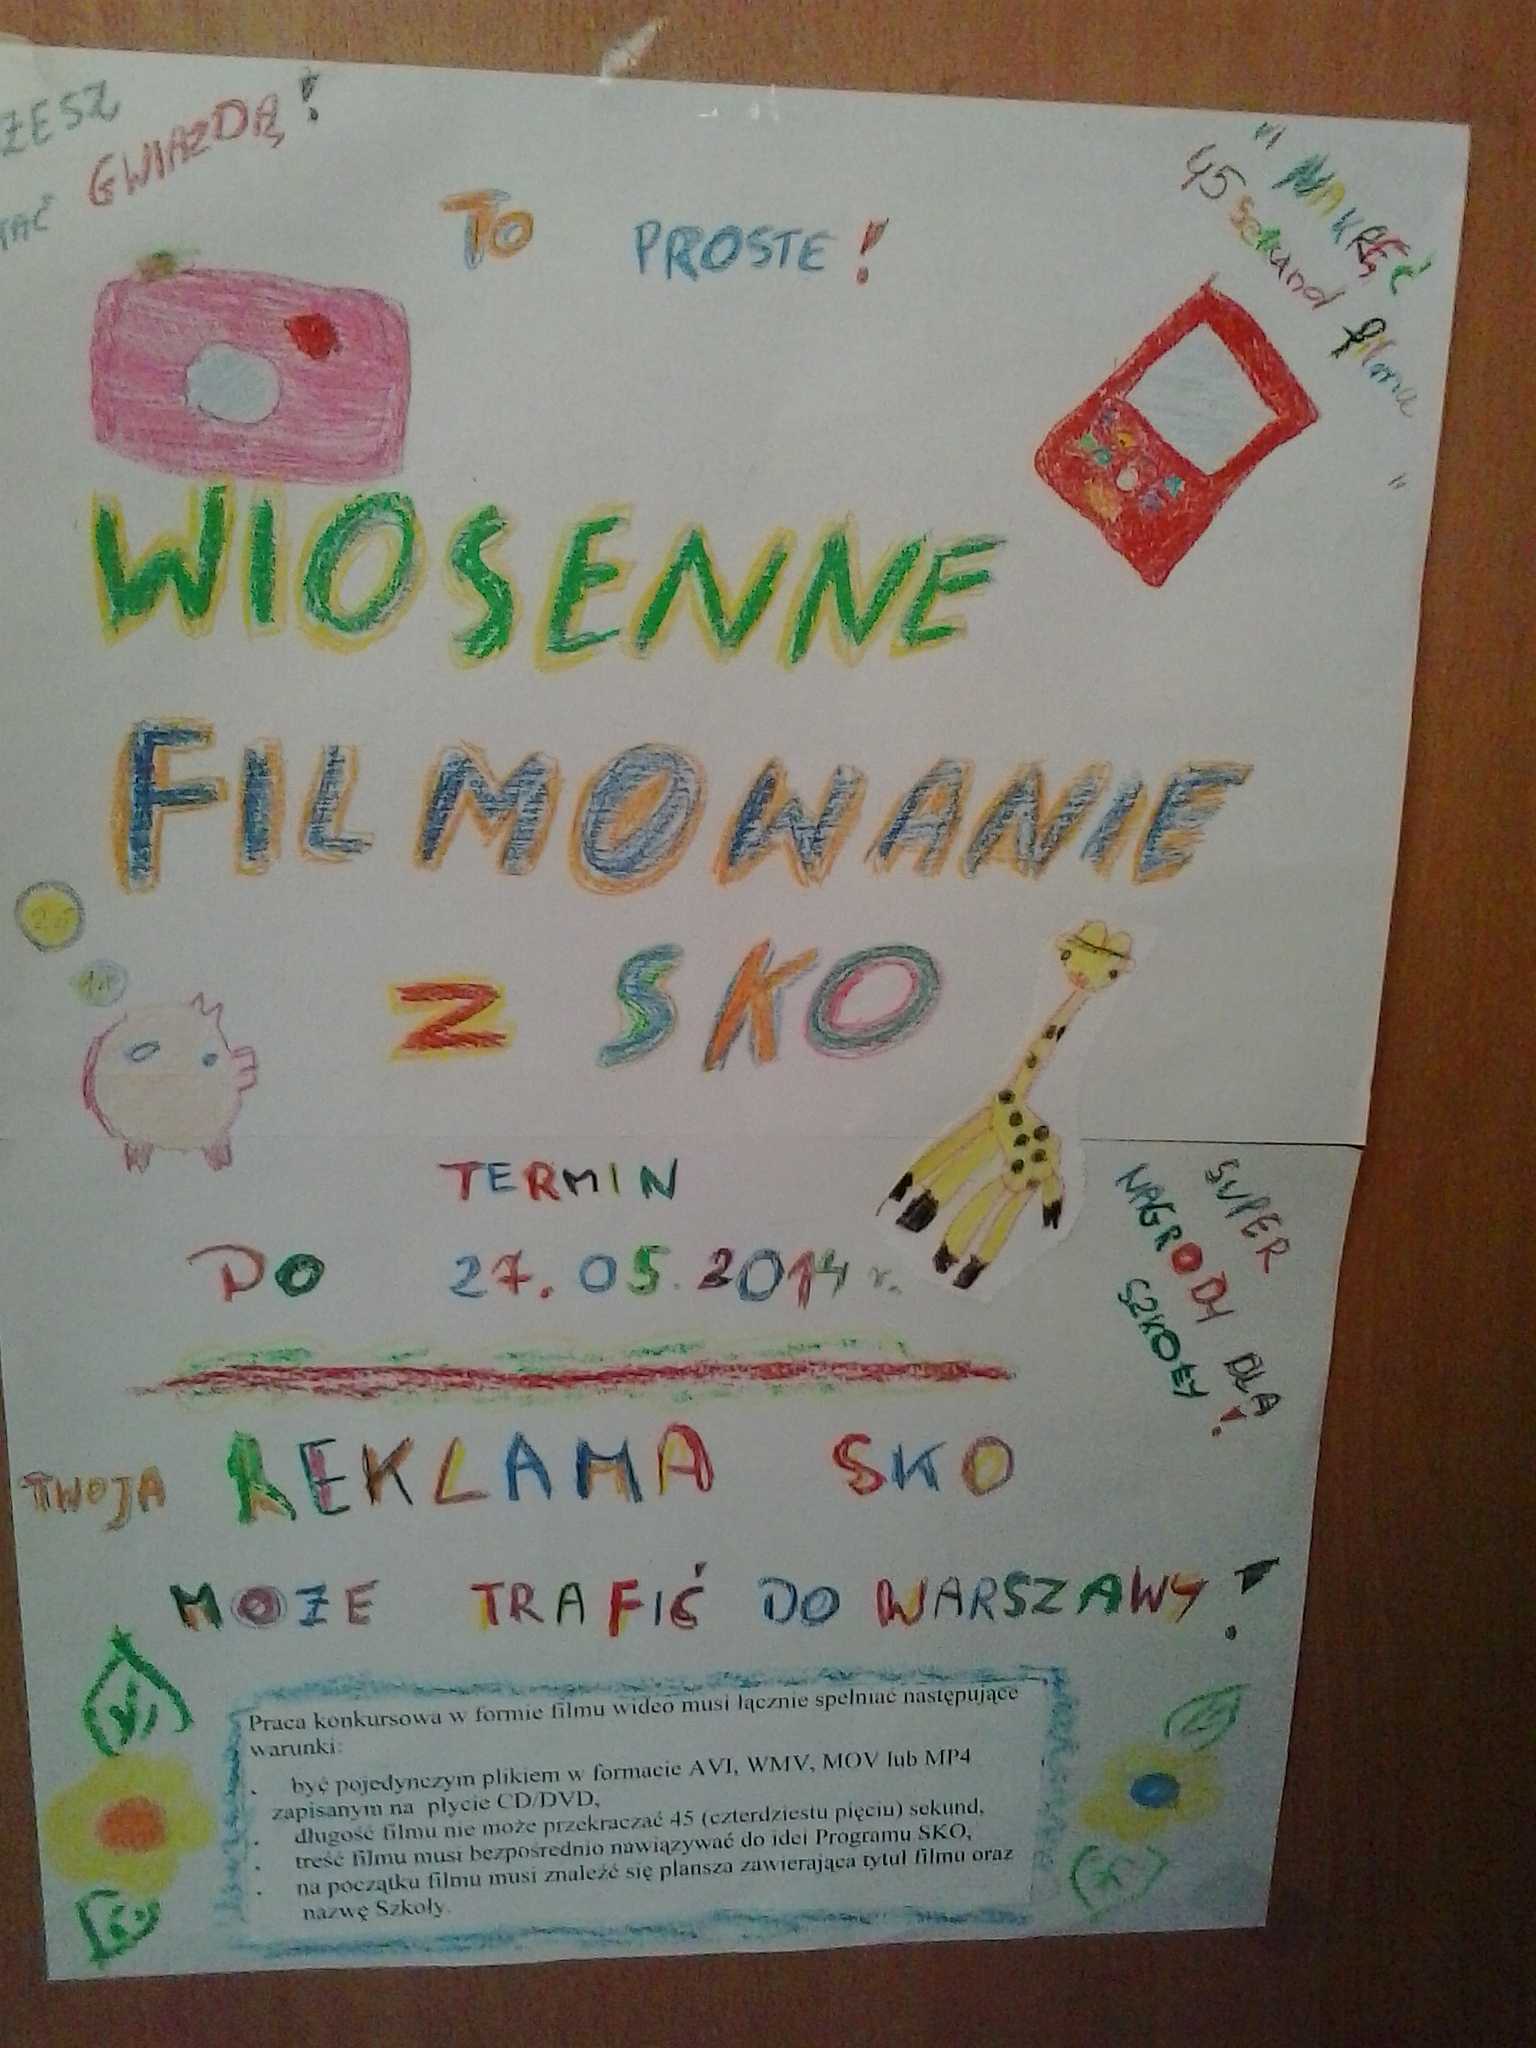 GWIAZDĄ!
TO PROSTE!
" NAKRĘĆ
45 sekund filmu "
WIOSENNE
FILMOWANIE
Z SKO
TERMIN
DO 27.05.2014 r.
SUPER
NAGRODY DLA
SZKOŁY!
TWOJA REKLAMA SKO
MOŻE TRAFIĆ DO WARSZAWY!
Praca konkursowa w formie filmu wideo musi łącznie spełniać następujące
warunki:
. być pojedynczym plikiem w formacie AVI, WMV, MOV lub MP4
zapisanym na płycie CD/DVD,
. długość filmu nie może przekraczać 45 (czterdziestu pięciu) sekund,
. treść filmu musi bezpośrednio nawiązywać do idei Programu SKO,
. na początku filmu musi znaleźć się plansza zawierająca tytuł filmu oraz
nazwę Szkoły.